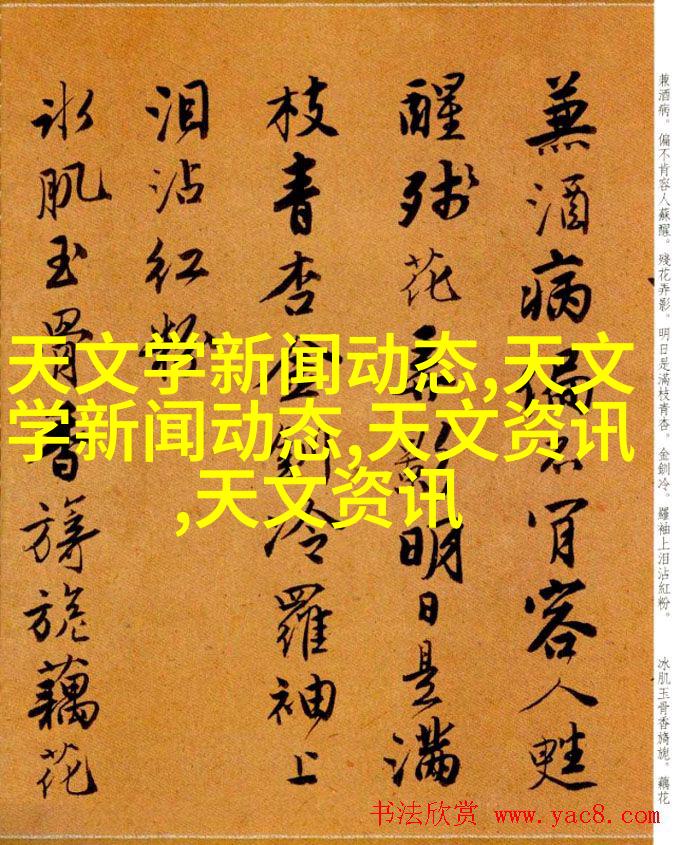 蕪酒病偏不肯容人甦
醒殘花弄影明日是滿
枝青杏金釧冷羅袖上
泪沾红粉
冰肌玉骨香旖旎藕花
兼酒病。偏不肯容人蘇醒。殘花弄影。明日是滿枝青杏。金釧冷。羅袖上泪沾紅粉。
冰肌玉骨香旖旎。藕花
天文学新闻动态,天文
学新闻动态,天文资讯
,天文资讯
书法欣赏 www.yac8.com